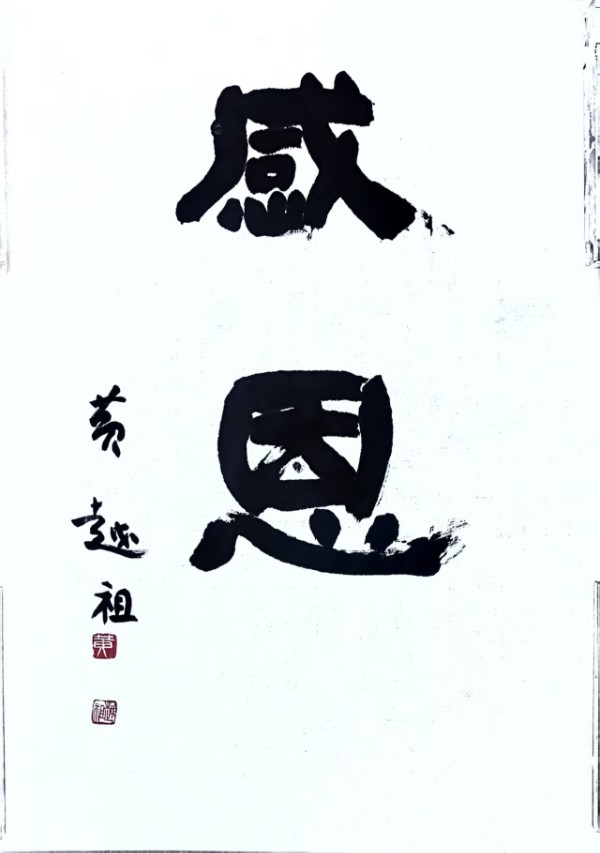 感恩
黄越祖
黄